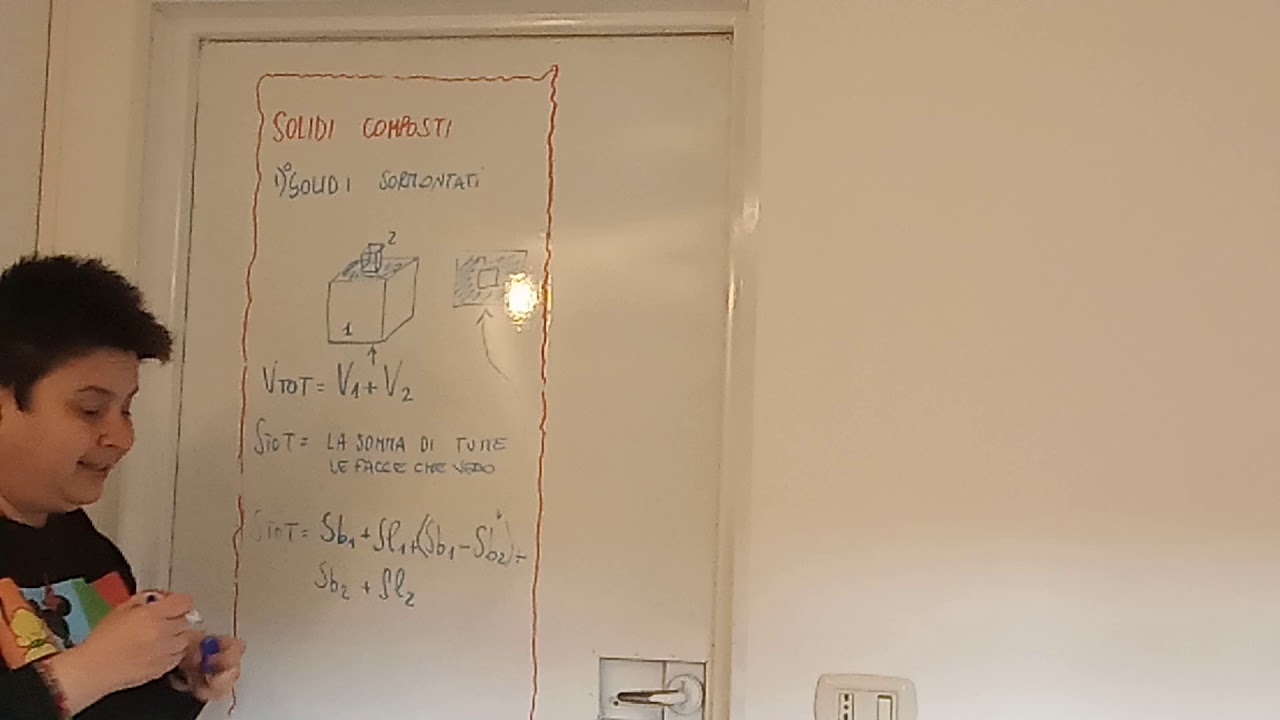 SOLIDI COMPOSTI
1)° SOLIDI SORMONTATI
2
1
VTOT = V1 + V2
STOT = LA SOMMA DI TUTTE
LE FACCE CHE VEDO
STOT = Sb1 + Sl1 + (Sb1 - Sb2) +
Sb2 + Sl2